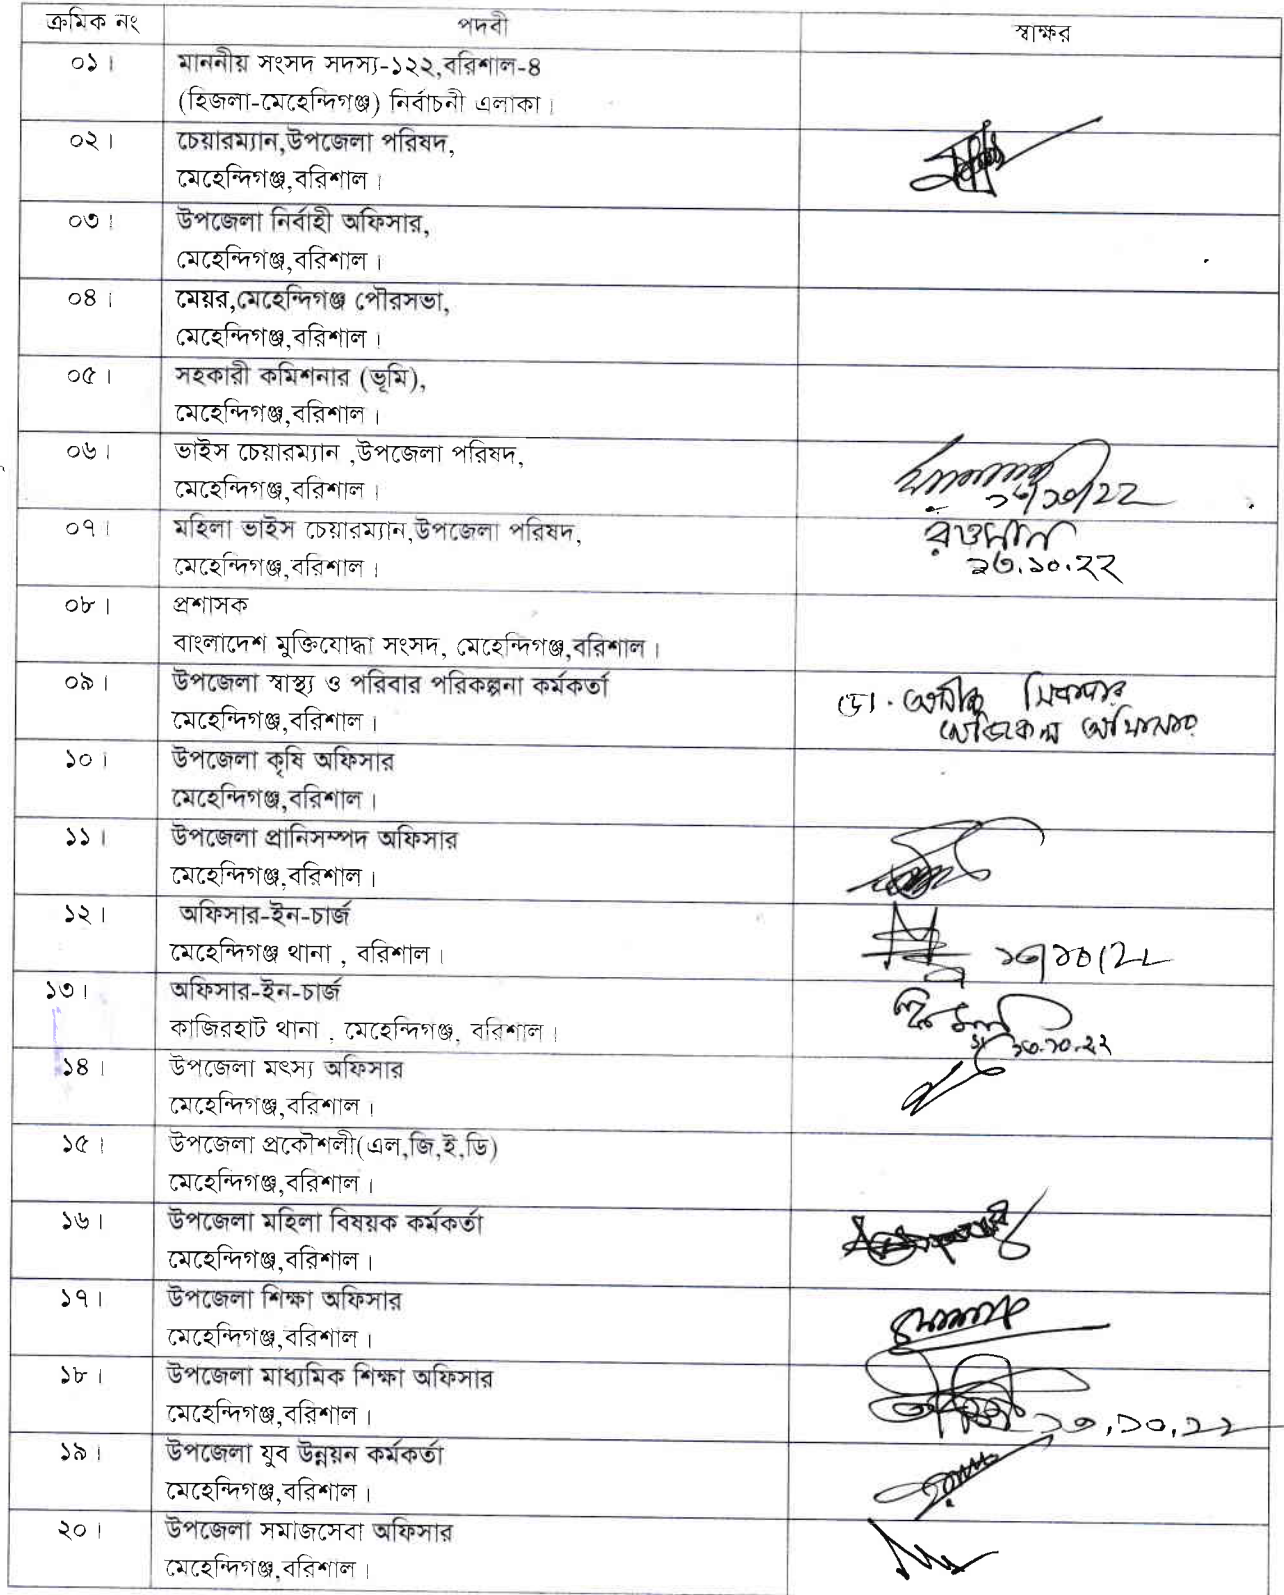 ক্রমিক নং পদবী স্বাক্ষর
০১। মাননীয় সংসদ সদস্য-১২২,বরিশাল-৪
(হিজলা-মেহেন্দিগঞ্জ) নির্বাচনী এলাকা।
০২। চেয়ারম্যান,উপজেলা পরিষদ,
মেহেন্দিগঞ্জ,বরিশাল।
০৩। উপজেলা নির্বাহী অফিসার,
মেহেন্দিগঞ্জ,বরিশাল।
০৪। মেয়র,মেহেন্দিগঞ্জ পৌরসভা,
মেহেন্দিগঞ্জ,বরিশাল।
০৫। সহকারী কমিশনার (ভূমি),
মেহেন্দিগঞ্জ,বরিশাল।
০৬। ভাইস চেয়ারম্যান ,উপজেলা পরিষদ,
মেহেন্দিগঞ্জ,বরিশাল। ১৩/১০/২২
০৭। মহিলা ভাইস চেয়ারম্যান,উপজেলা পরিষদ,
মেহেন্দিগঞ্জ,বরিশাল। ১৩.১০.২২
০৮। প্রশাসক
বাংলাদেশ মুক্তিযোদ্ধা সংসদ, মেহেন্দিগঞ্জ,বরিশাল।
০৯। উপজেলা স্বাস্থ্য ও পরিবার পরিকল্পনা কর্মকর্তা ডা.
মেহেন্দিগঞ্জ,বরিশাল। মেডিকেল অফিসার
১০। উপজেলা কৃষি অফিসার
মেহেন্দিগঞ্জ,বরিশাল।
১১। উপজেলা প্রানিসম্পদ অফিসার
মেহেন্দিগঞ্জ,বরিশাল।
১২। অফিসার-ইন-চার্জ
মেহেন্দিগঞ্জ থানা , বরিশাল। ১৩/১০/২২
১৩। অফিসার-ইন-চার্জ
কাজিরহাট থানা , মেহেন্দিগঞ্জ, বরিশাল। ১৩.১০.২২
১৪। উপজেলা মৎস্য অফিসার
মেহেন্দিগঞ্জ,বরিশাল।
১৫। উপজেলা প্রকৌশলী(এল,জি,ই,ডি)
মেহেন্দিগঞ্জ,বরিশাল।
১৬। উপজেলা মহিলা বিষয়ক কর্মকর্তা
মেহেন্দিগঞ্জ,বরিশাল।
১৭। উপজেলা শিক্ষা অফিসার
মেহেন্দিগঞ্জ,বরিশাল।
১৮। উপজেলা মাধ্যমিক শিক্ষা অফিসার
মেহেন্দিগঞ্জ,বরিশাল। ১৩,১০,২২
১৯। উপজেলা যুব উন্নয়ন কর্মকর্তা
মেহেন্দিগঞ্জ,বরিশাল।
২০। উপজেলা সমাজসেবা অফিসার
মেহেন্দিগঞ্জ,বরিশাল।